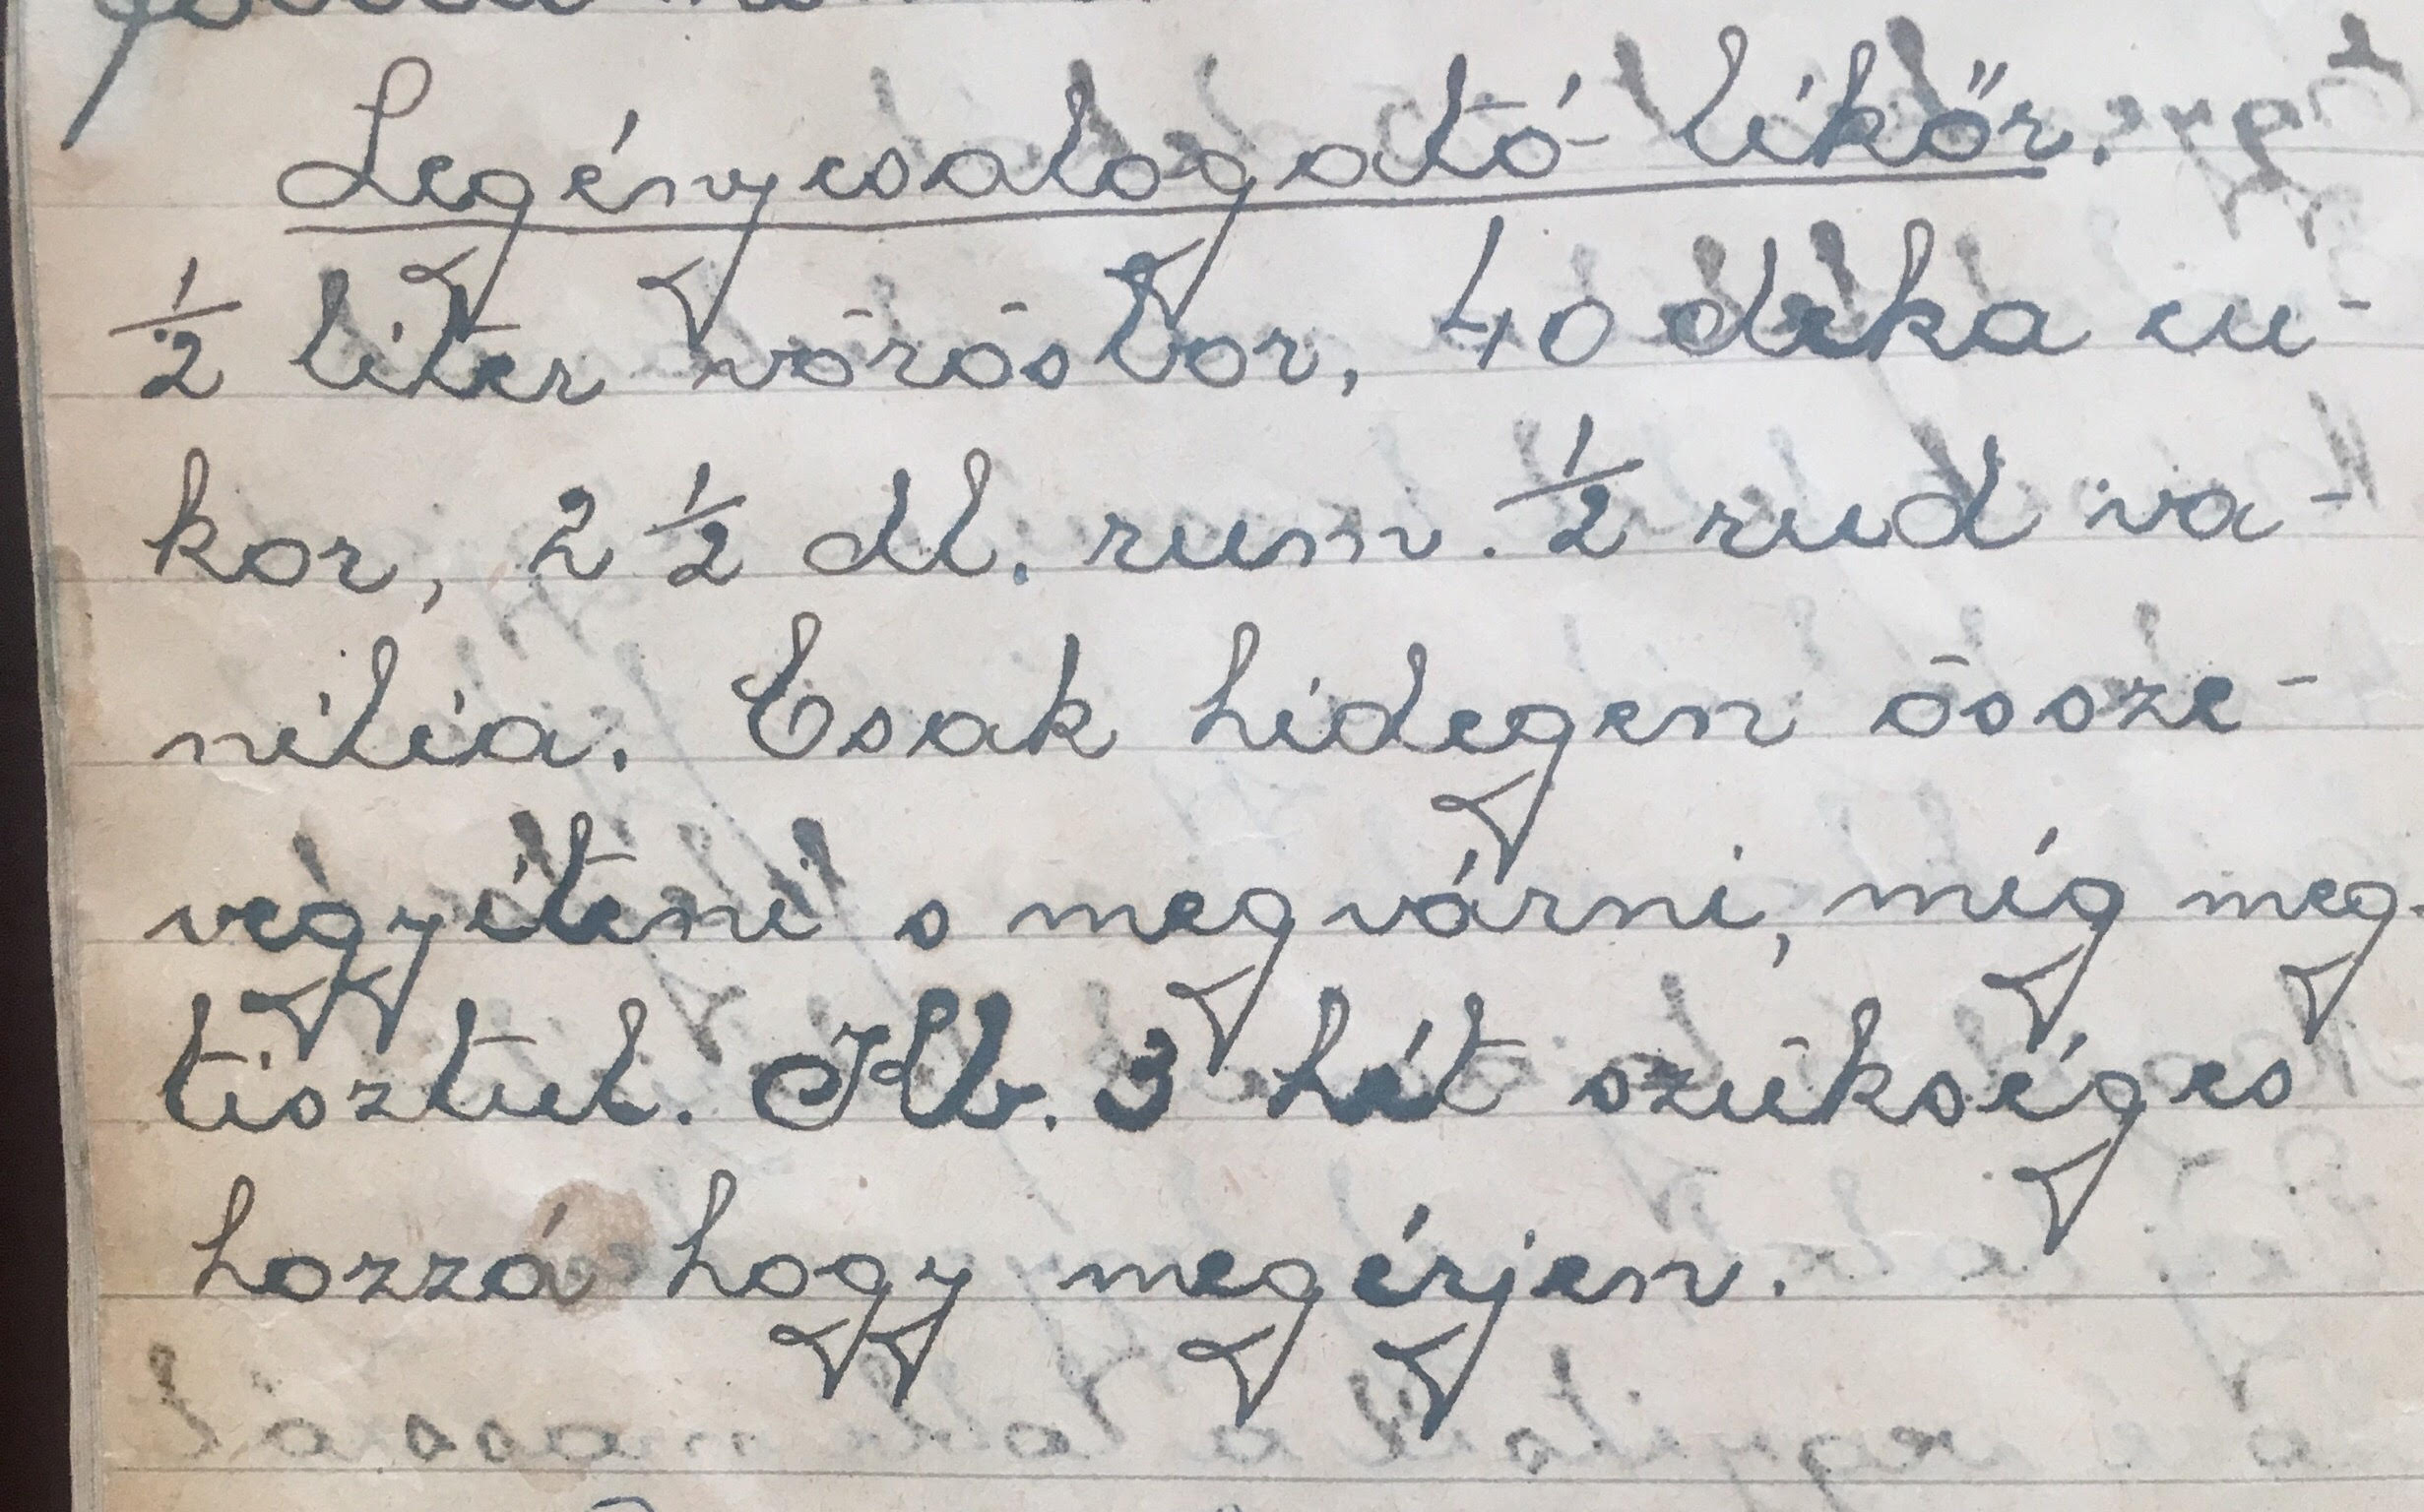 Legénycsalogató likőr.
1/2 liter vörösbor, 40 deka cu-
kor, 2 1/2 dl. rum. 1/2 rud va-
nilia. Csak hidegen össze-
végyíteni s megvárni, míg meg-
tisztul. Kb. 3 hét szükséges
hozzá hogy megérjen.